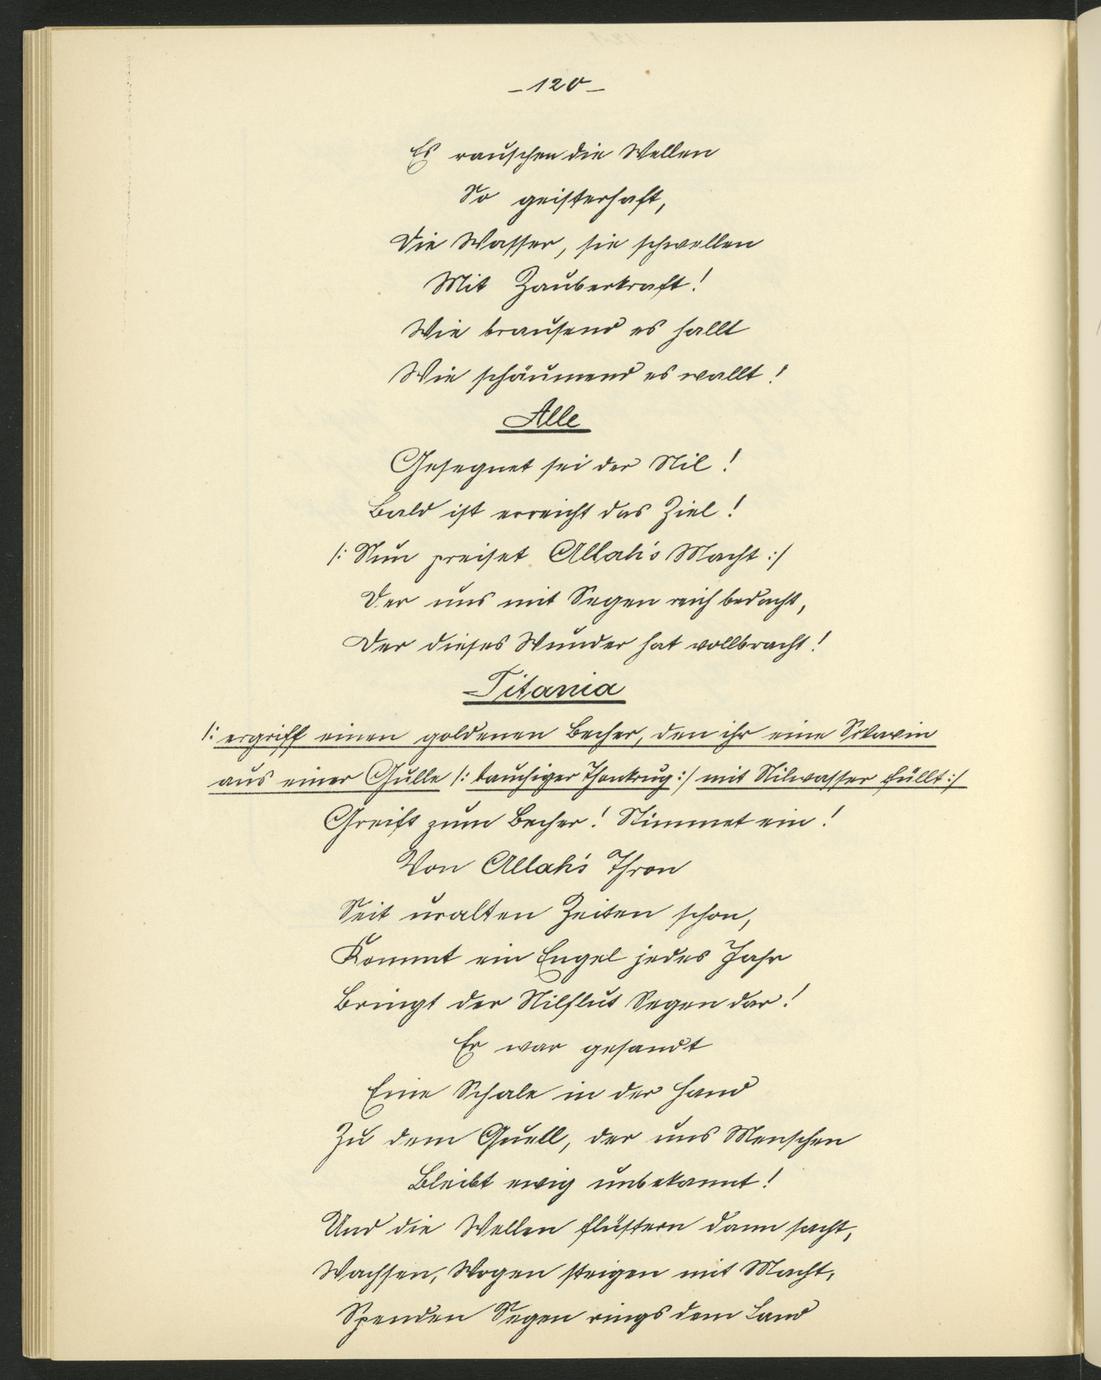 – 120 –
Es rauschen die Wellen
So geisterhaft,
Die Wasser, sie schwellen
Mit Zauberkraft!
Wie brausend es hallt
Wie schäumend es wallt!
Alle
Gesegnet sei der Nil!
Bald ist erreicht das Ziel!
/: Nun preiset Allah's Macht :/
Der uns mit Segen reich bedacht,
Der dieses Wunder hat vollbracht!
Titania
/: ergriff einen goldenen Becher, den ihr eine Sklavin
aus einer Gulle /: bauchiger Thonkrug :/ mit Nilwasser füllt :/
Greift zum Becher! Stimmet ein!
Von Allah's Thron
Seit uralten Zeiten schon,
Kommt ein Engel jedes Jahr
Bringt der Nilflut Segen dar!
Er war gesandt
Eine Schale in der Hand
Zu dem Quell, der uns Menschen
Bleibt ewig unbekannt!
Und die Wellen flüstern dann sacht,
Wachsen, Wogen steigen mit Macht,
Spenden Segen rings dem Land